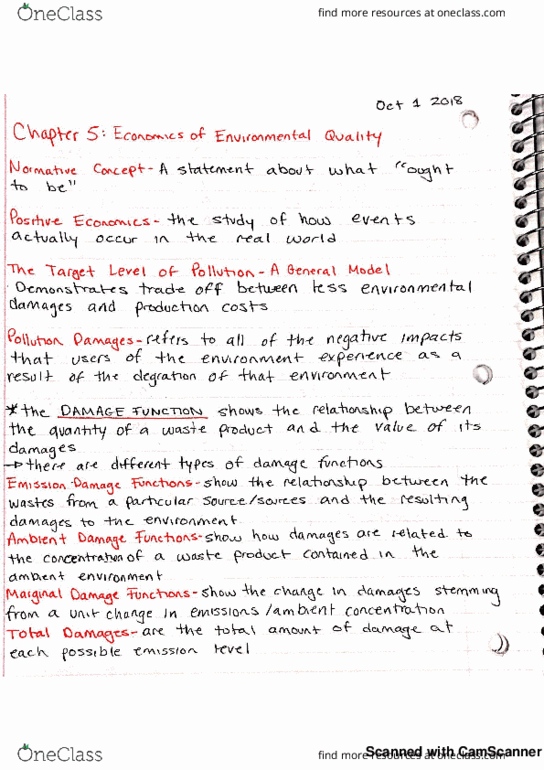 OneClass
find more resources at oneclass.com
Oct 1 2018
Chapter 5: Economics of Environmental Quality
Normative Concept - A statement about what "ought
to be"
Positive Economics - the study of how events
actually occur in the real world
The Target Level of Pollution - A General Model
· Demonstrates trade off between less environmental
damages and production costs
Pollution Damages - refers to all of the negative impacts
that users of the environment experience as a
result of the degration of that environment
* the DAMAGE FUNCTION shows the relationship between
the quantity of a waste product and the value of its
damages
→ there are different types of damage functions
Emission Damage Functions - show the relationship between the
wastes from a particular source/sources and the resulting
damages to the environment
Ambient Damage Functions - show how damages are related to
the concentration of a waste product contained in the
ambient environment
Marginal Damage Functions - show the change in damages stemming
from a unit change in emissions /ambient concentration
Total Damages - are the total amount of damage at
each possible emission level
OneClass
find more resources at oneclass.com
Scanned with CamScanner